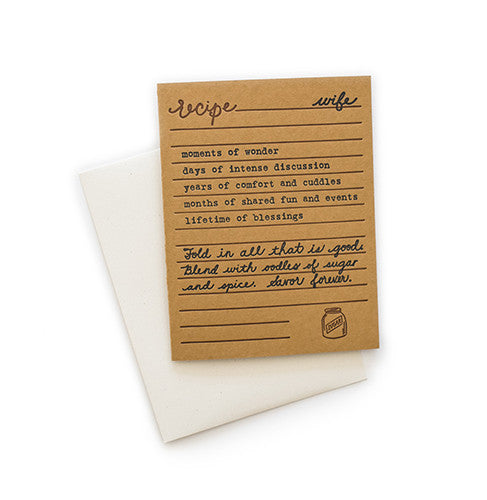 recipe wife
moments of wonder
days of intense discussion
years of comfort and cuddles
months of shared fun and events
lifetime of blessings
Fold in all that is good.
Blend with oodles of sugar
and spice. Savor forever.
SUGAR